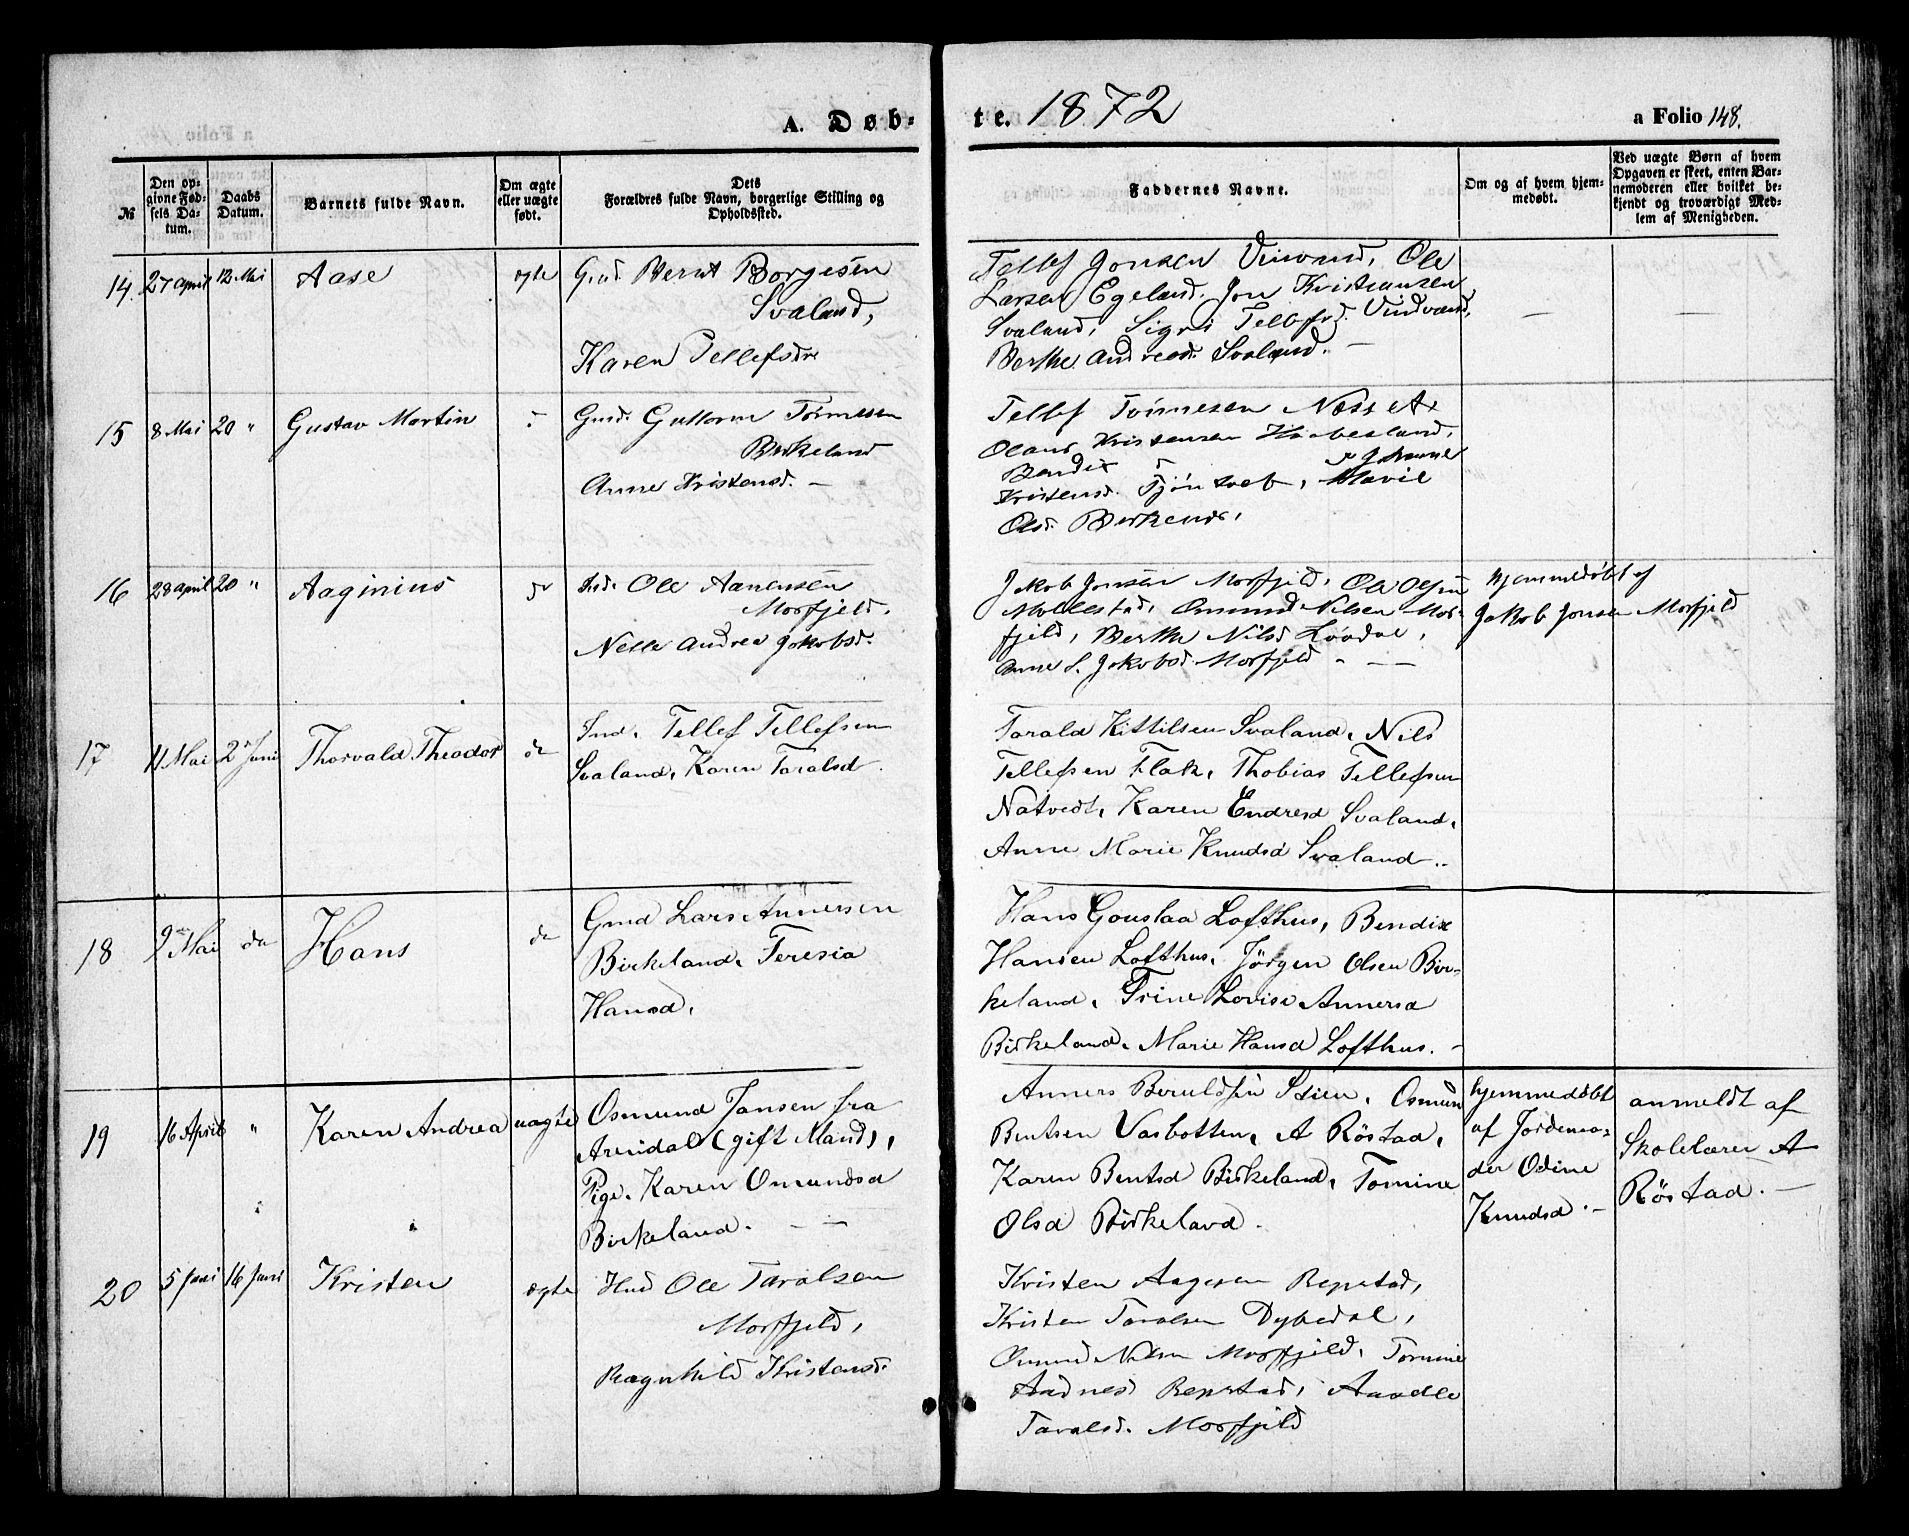 A. Døb-
te. 1872
a Folio 148.
№
Den op-
givne Fød-
sels Da-
tum.
Daabs
Datum.
Barnets fulde Navn.
Om ægte
eller uægte
født.
Dets
Forældres fulde Navn, borgerlige Stilling og
Opholdssted.
Faddernes Navne.
Om og af hvem hjem-
medøbt.
Ved uægte Børn af hvem
Opgaven er skeet, enten Bar-
nemoderen eller hvilket be-
kjendt og troværdigt Med-
lem af Menigheden.
14. 27 April 12 Mai Aase ægte
Gmd. Bernt Borgesen
Svaland,
Karen Tellefsdr
Tellef Jonsen Vinvand, Ole
Larsen Egeland, Jon Kristiansen
Svaland, Sigri Tellefsd. Vindvand,
Berthe Andreasd. Svaland. —
— —
15 8 Mai 20 " Gustav Mortin
Gmd. Guttorm Tørresen
Birkeland
Anne Kristensd. —
Tellef Tørresen Næset
Olaus Kristensen Haabesland,
Bendix
Kristensd. Tjøntveb,
Olsd. Birkend,
16 28 April 20 " Aaginius do
Ole Aanensen
Morfjeld.
Nelle Andrea Jakobsd.
Jakob Jonsen Morfjeld, Ole Olsen
Mollestad, Omund Nilsen Mor-
fjeld, Berthe Nilsd Løvdal,
Anne S. Jakobsd Morfjeld - — —
hjemmedøbt af
Jakob Jonsen Morfjeld
17 11 Mai 2 Juni Thorvald Theodor do
Tellef Tellefsen
Svaland, Karen Taralsd.
Tarald Kittilsen Svaland, Nils
Tellefsen Flak, Thobias Tellefsen
Natvedt, Karen Endresd Svaland,
Anne Marie Knudsd Svaland..
18 9 Mai do Hans do
Gmd Lars Annersen
Birkeland, Teresia
Hansd,
Hans Gouslaa Lofthus, Bendix
Hansen Lofthus, Jörgen Olsen Bir-
keland, Trine Lovise Annersd
Birkeland, Marie Hansd Lofthus. -
19 16 April " Karen Andrea uægte
Osmund Jansen fra
Arendal (gift Mand),
Pige. Karen Omundsd
Birkeland. — —
Anners Beruldsen Stien, Osmun
Bentsen Vasbotten, A Röstad,
Karen Bentsd Birkeland, Tomine
Olsd Birkeland.
hjemmedöbt
af Jordemo-
der Odine
Knudsd. —
anmeldt af
Skolelærer A
Röstad. —
20 5 Juni 16 Juni Kristen ægte
Hmd Ole Taralsen
Morfjeld,
Ragnhild Kristensd.
Kristen Aagesen Repstad,
Kristen Taralsen Dybedal,
Omund Nilsen Morfjeld, Tomine
Aadnesd Repstad, Aasele
Taralsd. Morfjeld